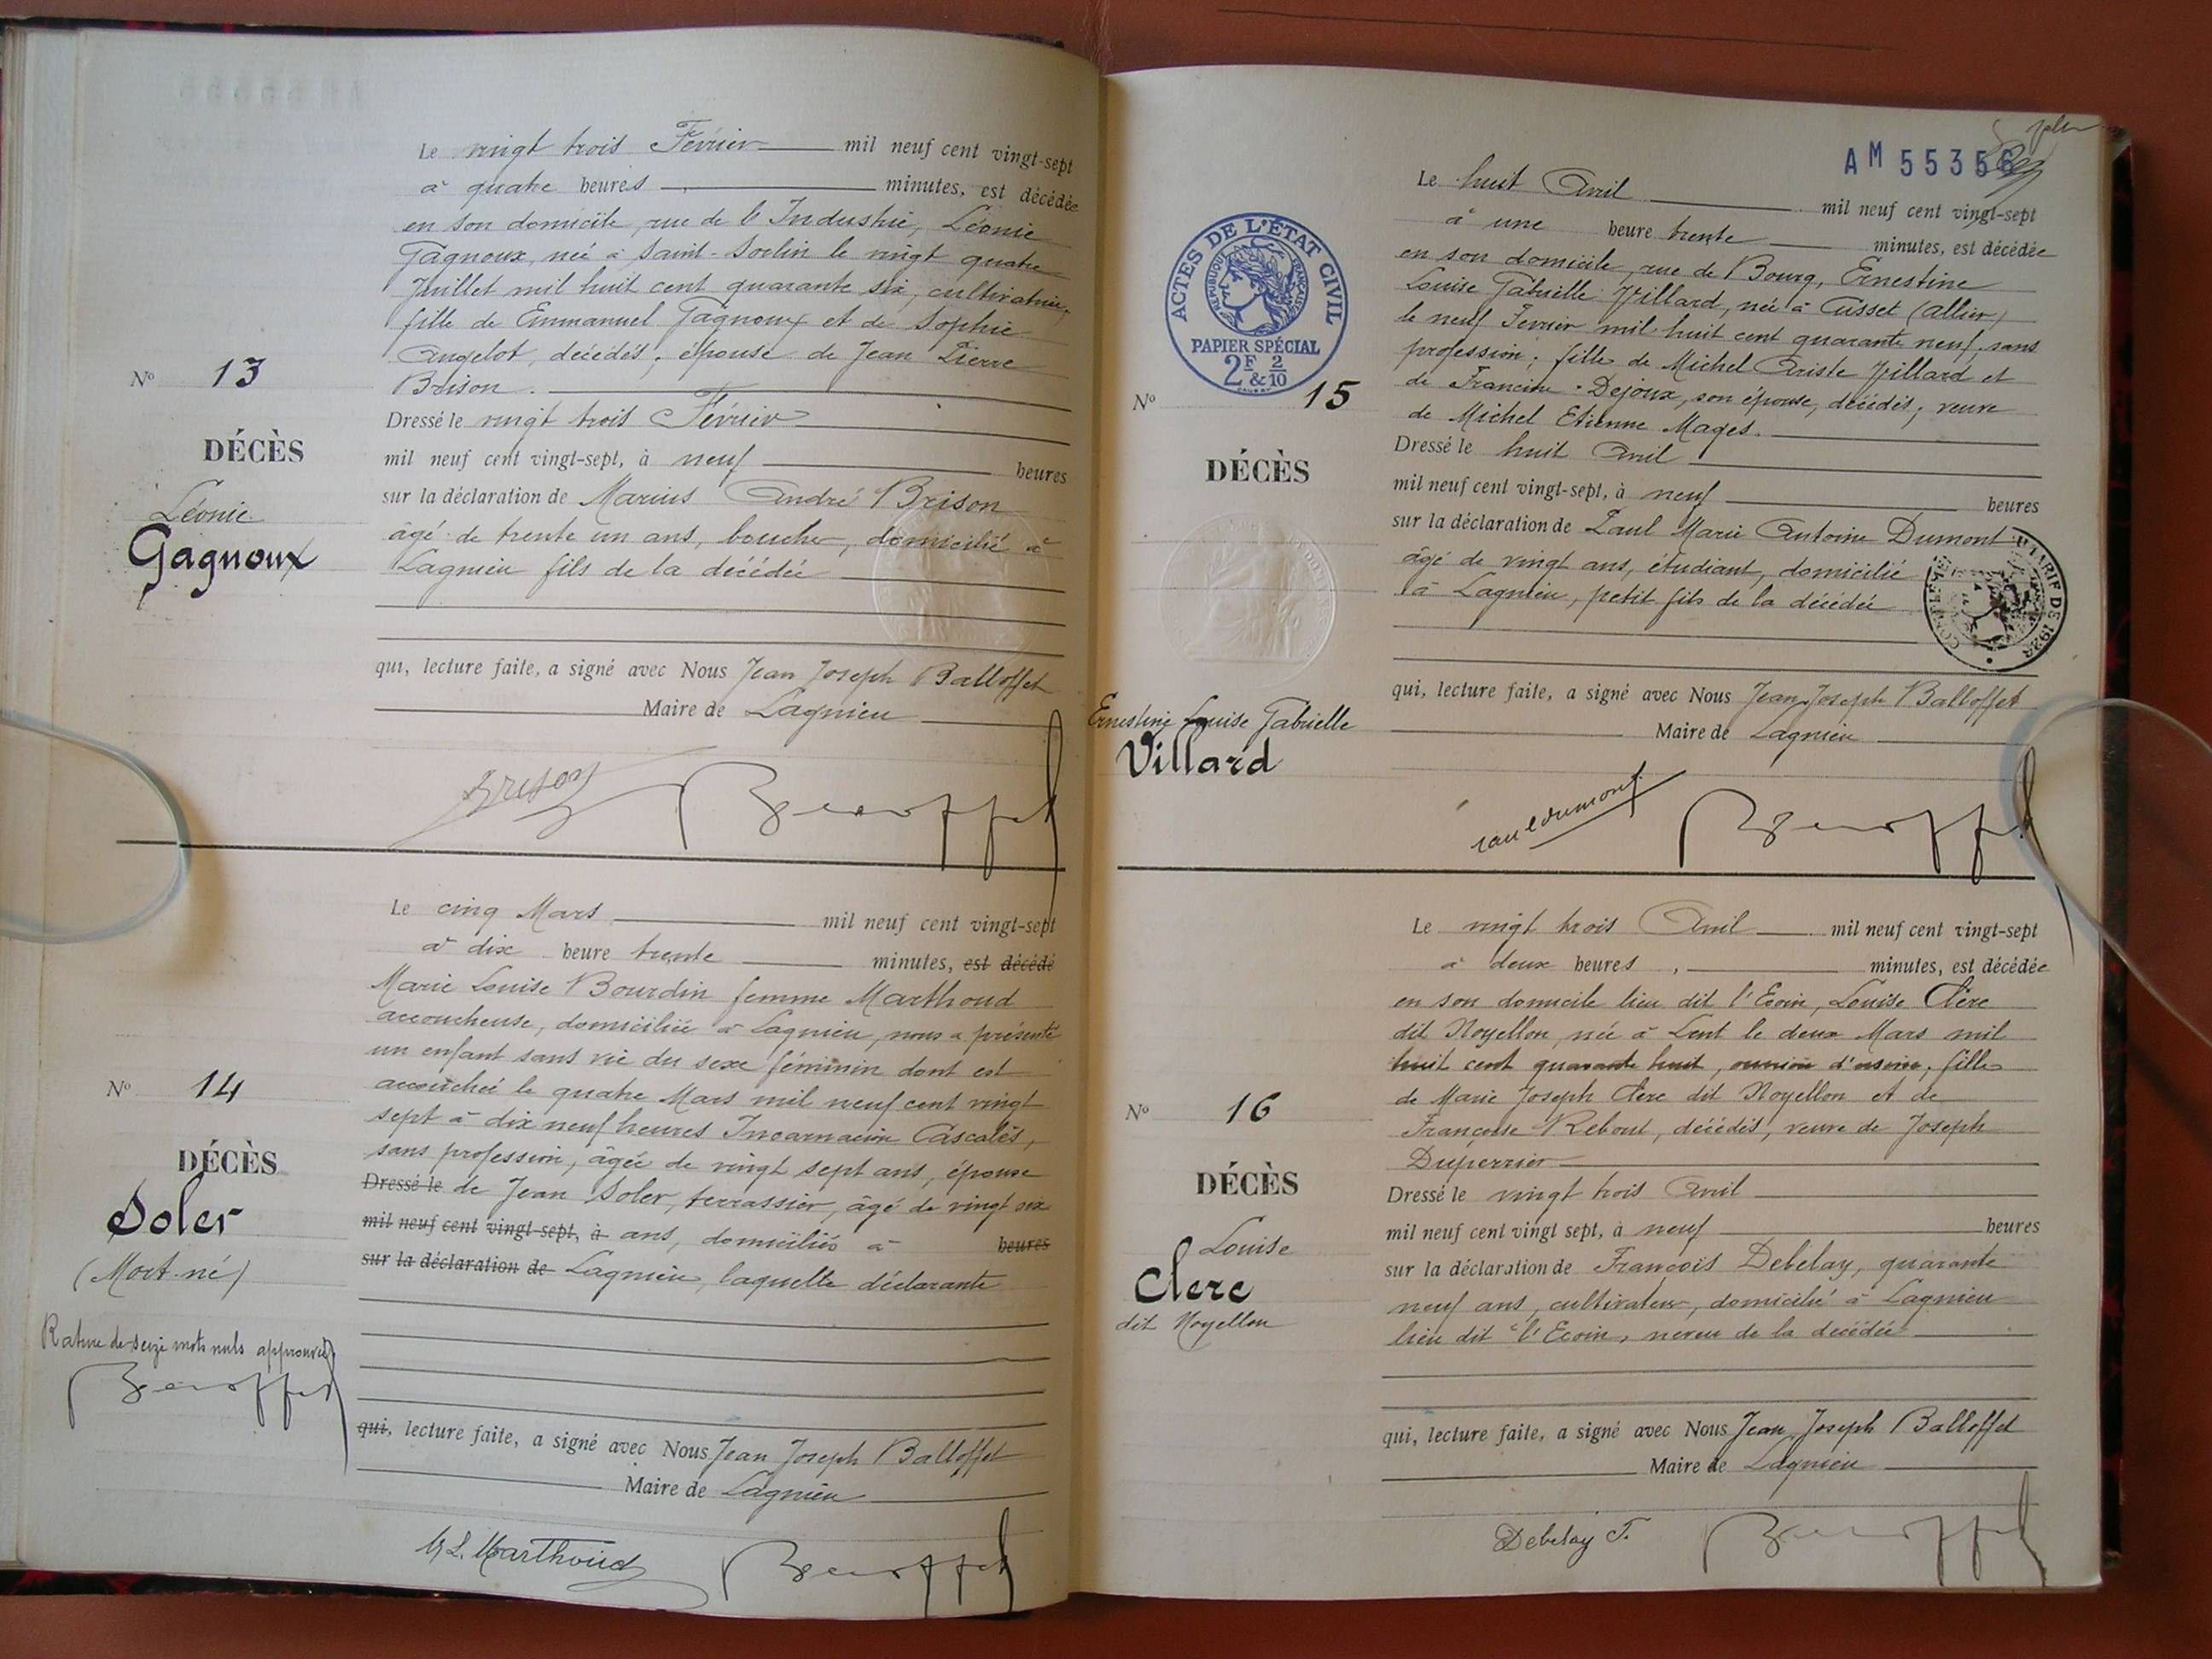 Le vingt trois Février mil neuf cent vingt-sept
à quatre heures minutes, est décédée
en son domicile, rue de l'Industrie, Léonie
Gagnoux, née à Saint-Sorlin le vingt quatre
Juillet mil huit cent quarante six, cultivatrice,
fille de Emmanuel Gagnoux et de Sophie
Angelot, décédés; épouse de Jean Pierre
Brison.
Nº 13
DÉCÈS
Léonie
Gagnoux
Dressé le vingt trois Février
mil neuf cent vingt-sept, à neuf heures
sur la déclaration de Marius André Brison
âgé de trente un ans, boucher, domicilié à
Lagnieu fils de la décédée
qui, lecture faite, a signé avec Nous Jean Joseph Balloffet
Maire de Lagnieu
Brison
Balloffet
Le cinq Mars mil neuf cent vingt-sept
à dix heure trente minutes, est décédé
Marie Louise Bourdin femme Marthoud
accoucheuse, domiciliée à Lagnieu, nous a présenté
un enfant sans vie du sexe féminin dont est
accouchée le quatre Mars mil neuf cent vingt
sept à dix neuf heures Incarnacion Cascalès,
sans profession, âgée de vingt sept ans, épouse
Dressé le de Jean Soler, terrassier, âgé de vingt six
mil neuf cent vingt-sept, à ans, domiciliés à heures
sur la déclaration de Lagnieu, laquelle déclarante
Nº 14
DÉCÈS
Soler
(Mort-né)
Rature de seize mots nuls approuvée
Balloffet
qui, lecture faite, a signé avec Nous Jean Joseph Balloffet
Maire de Lagnieu
M. L. Marthoud
Balloffet
AM 55356
ACTES DE L'ÉTAT CIVIL
RÉPUBLIQUE FRANÇAISE
PAPIER SPÉCIAL
2F & 2/10
Le huit Avril mil neuf cent vingt-sept
à une heure trente minutes, est décédée
en son domicile, rue de Bourg, Ernestine
Louise Gabrielle Villard, née à Cusset (Allier)
le neuf Fevrier mil huit cent quarante neuf, sans
profession; fille de Michel Ariste Villard et
de Francine Dejoux, son épouse, décédés; veuve
de Michel Etienne Mages.
Nº 15
DÉCÈS
Ernestine Louise Gabrielle
Villard
Dressé le huit Avril
mil neuf cent vingt-sept, à neuf heures
sur la déclaration de Paul Marie Antoine Dumont
âgé de vingt ans, étudiant, domicilié
à Lagnieu, petit fils de la décédée
TARIF DE
qui, lecture faite, a signé avec Nous Jean Joseph Balloffet
Maire de Lagnieu
Paul Dumont
Balloffet
Le vingt trois Avril mil neuf cent vingt-sept
à deux heures minutes, est décédée
en son domicile lieu dit l'Ecoin, Louise Clerc
dit Noyellon, née à Lent le deux Mars mil
huit cent quarante huit, ouvrière d'usine, fille
de Marie Joseph Clerc dit Noyellon et de
Françoise Reboul, décédés, veuve de Joseph
Duperrier
Nº 16
DÉCÈS
Louise
Clerc
dit Noyellon
Dressé le vingt trois Avril
mil neuf cent vingt sept, à neuf heures
sur la déclaration de François Debelay, quarante
neuf ans, cultivateur, domicilié à Lagnieu
lieu dit l'Ecoin, neveu de la décédée
qui, lecture faite, a signé avec Nous Jean Joseph Balloffet
Maire de Lagnieu
Debelay F.
Balloffet